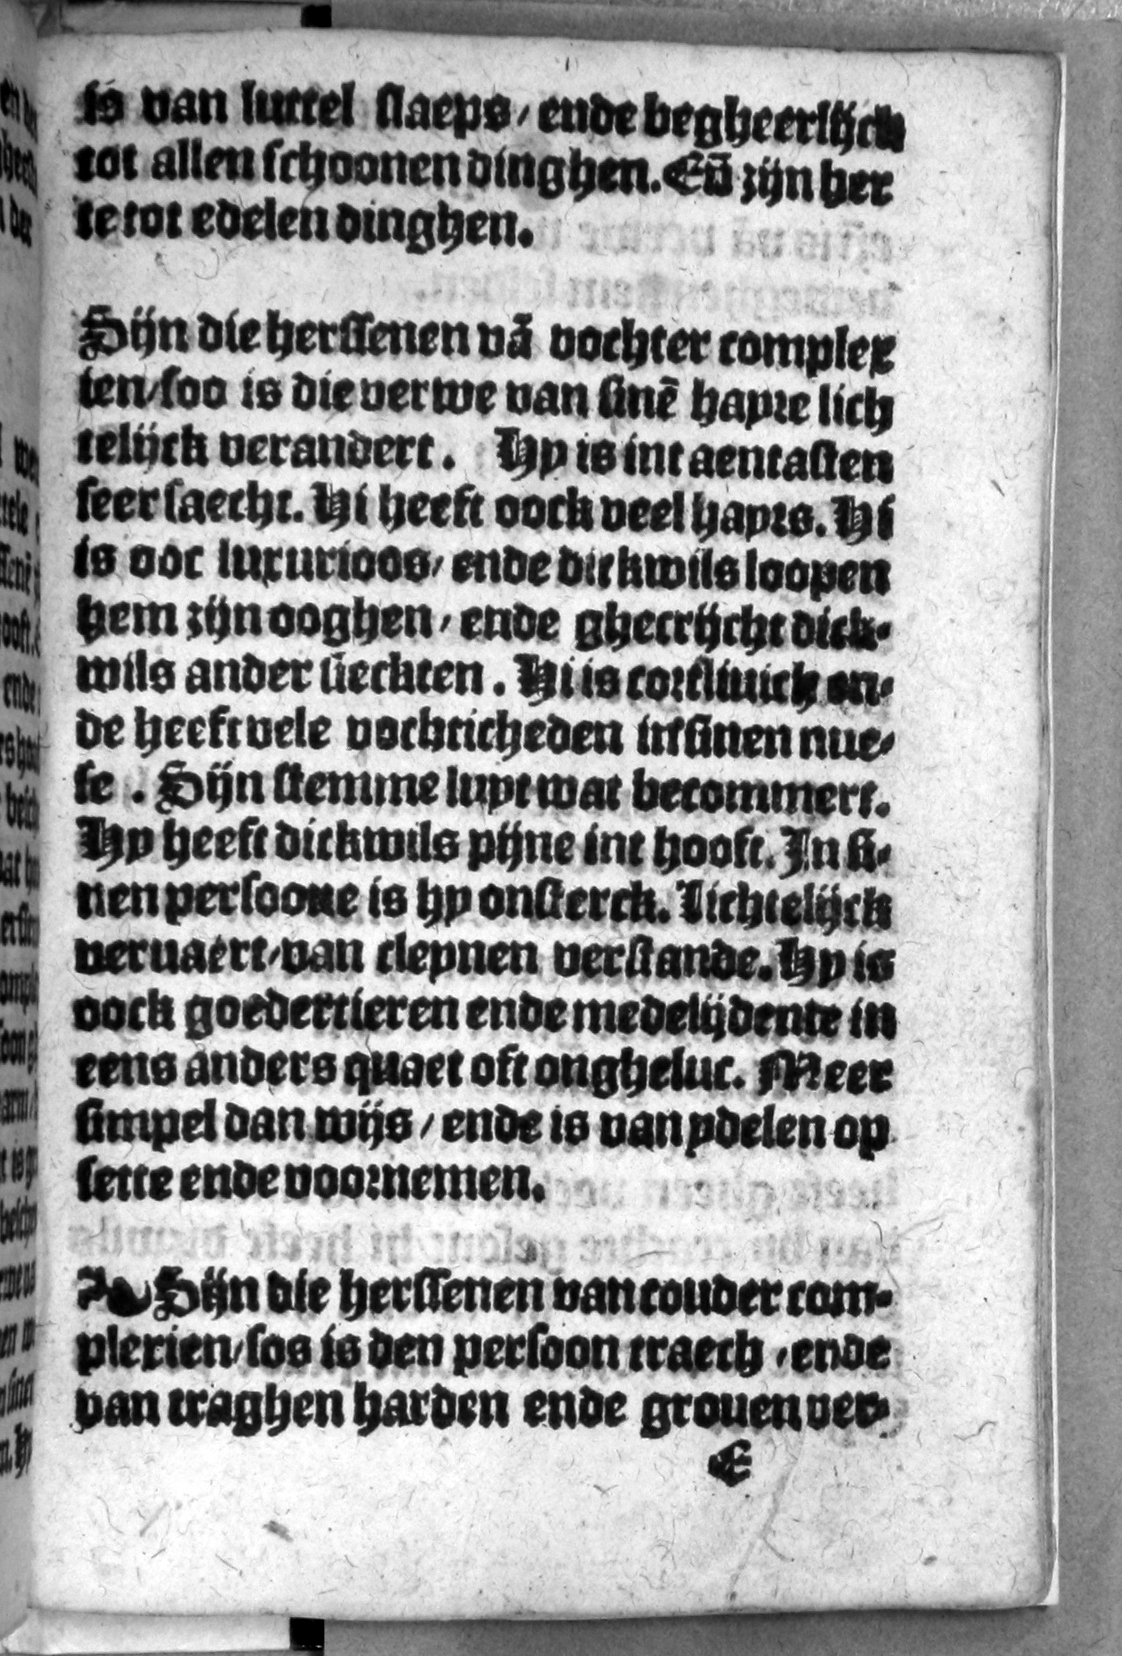 is van luttel slaeps/ ende begheerlijck
tot allen schoonen dinghen. Eñ zijn her
te tot edelen dinghen.
Sijn die herssenen vã vochter complex
ien/ soo is die verwe van sinē hayre lich
telijck verandert. Hy is int aentasten
seer saecht. Hi heeft oock veel hayrs. Hi
is ooc luxurioos/ ende dickwils loopen
hem zijn ooghen/ ende ghecrijcht dick-
wils ander siecten. Hi is en-
de heeft vele vochticheden in sinen nue-
se. Sijn stemme luyt wat becommert.
Hy heeft dickwils pijne int hooft. In si-
nen persoone is hy onsterck. Lichtelijck
veruaert/ van cleynen verstande. Hy is
oock goedertieren ende medelijdente in
eens anders quaet oft ongheluc. Meer
simpel dan wijs/ ende is van ydelen op
sette ende voornemen.
Sijn die herssenen van couder com-
plexien/ soo is den persoon traech/ ende
van traghen harden ende grouen ver-
E